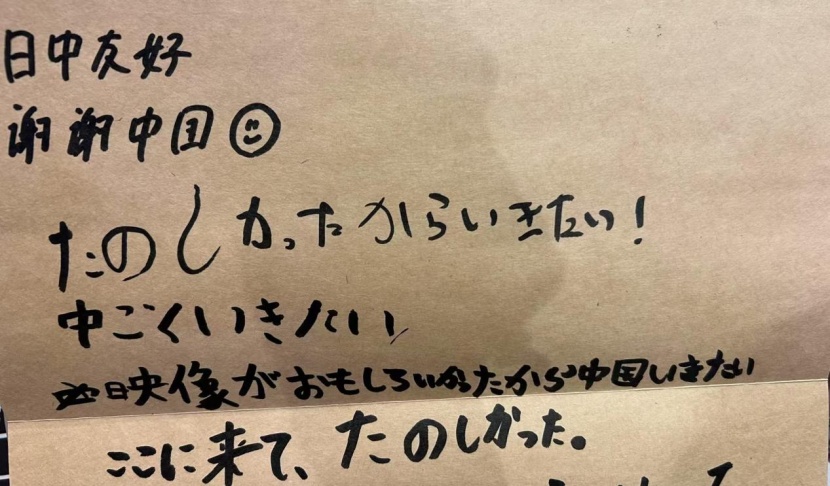 日中友好
谢谢中国
たのしかったからいきたい!
中ごくいきたい
映像がおもしろいかったから中国いきたい
ここに来て、たのしかった。